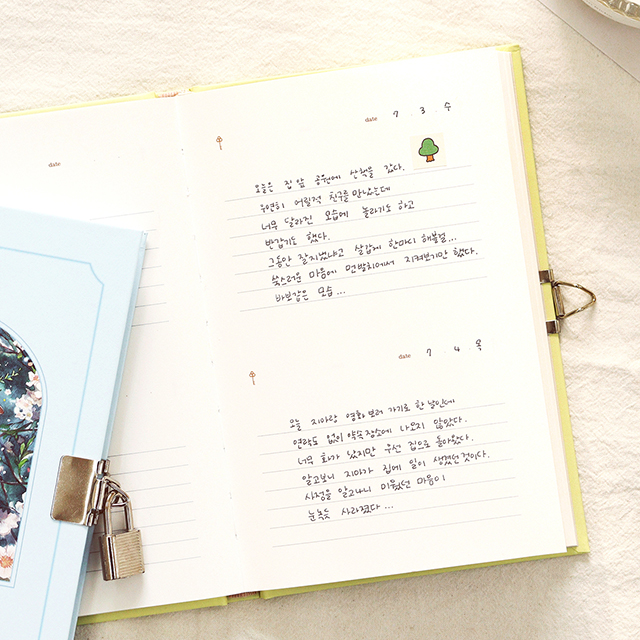 date
date 7 . 3 . 수
오늘은 집 앞 공원에 산책을 갔다.
우연히 어릴적 친구를 만났는데
너무 달라진 모습에 놀라기도 하고
반갑기도 했다.
그동안 잘지냈냐고 살갑게 한마디 해볼걸...
쑥스러운 마음에 먼발치에서 지켜보기만 했다.
바보같은 모습...
date 7 4 목
오늘 지아랑 영화 보러 가기로 한 날인데
연락도 없이 약속장소에 나오지 않았다.
너무 화가 났지만 우선 집으로 돌아왔다.
알고보니 지아가 집에 일이 생겼던것이다.
사정을 알고나니 미웠던 마음이
눈녹듯 사라졌다...